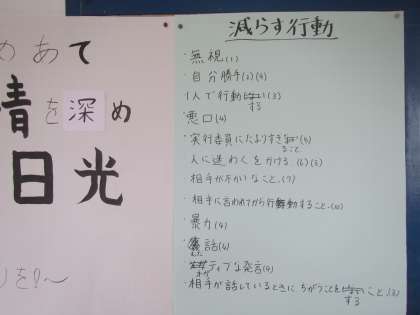 めあて
情を深め
日光
減らす行動
・無視(1)
・自分勝手(2)(4)
1人で行動する(3)
・悪口(4)
・実行委員にたよりすぎること(4)
人に迷わくをかける(6)(3)
相手が不かいなこと.(7)
・相手に言われてから行動すること.(10)
・暴力(4)
話(4)
ネガティブな発言(4)
・相手が話しているときに ちがうことをすること.(3)